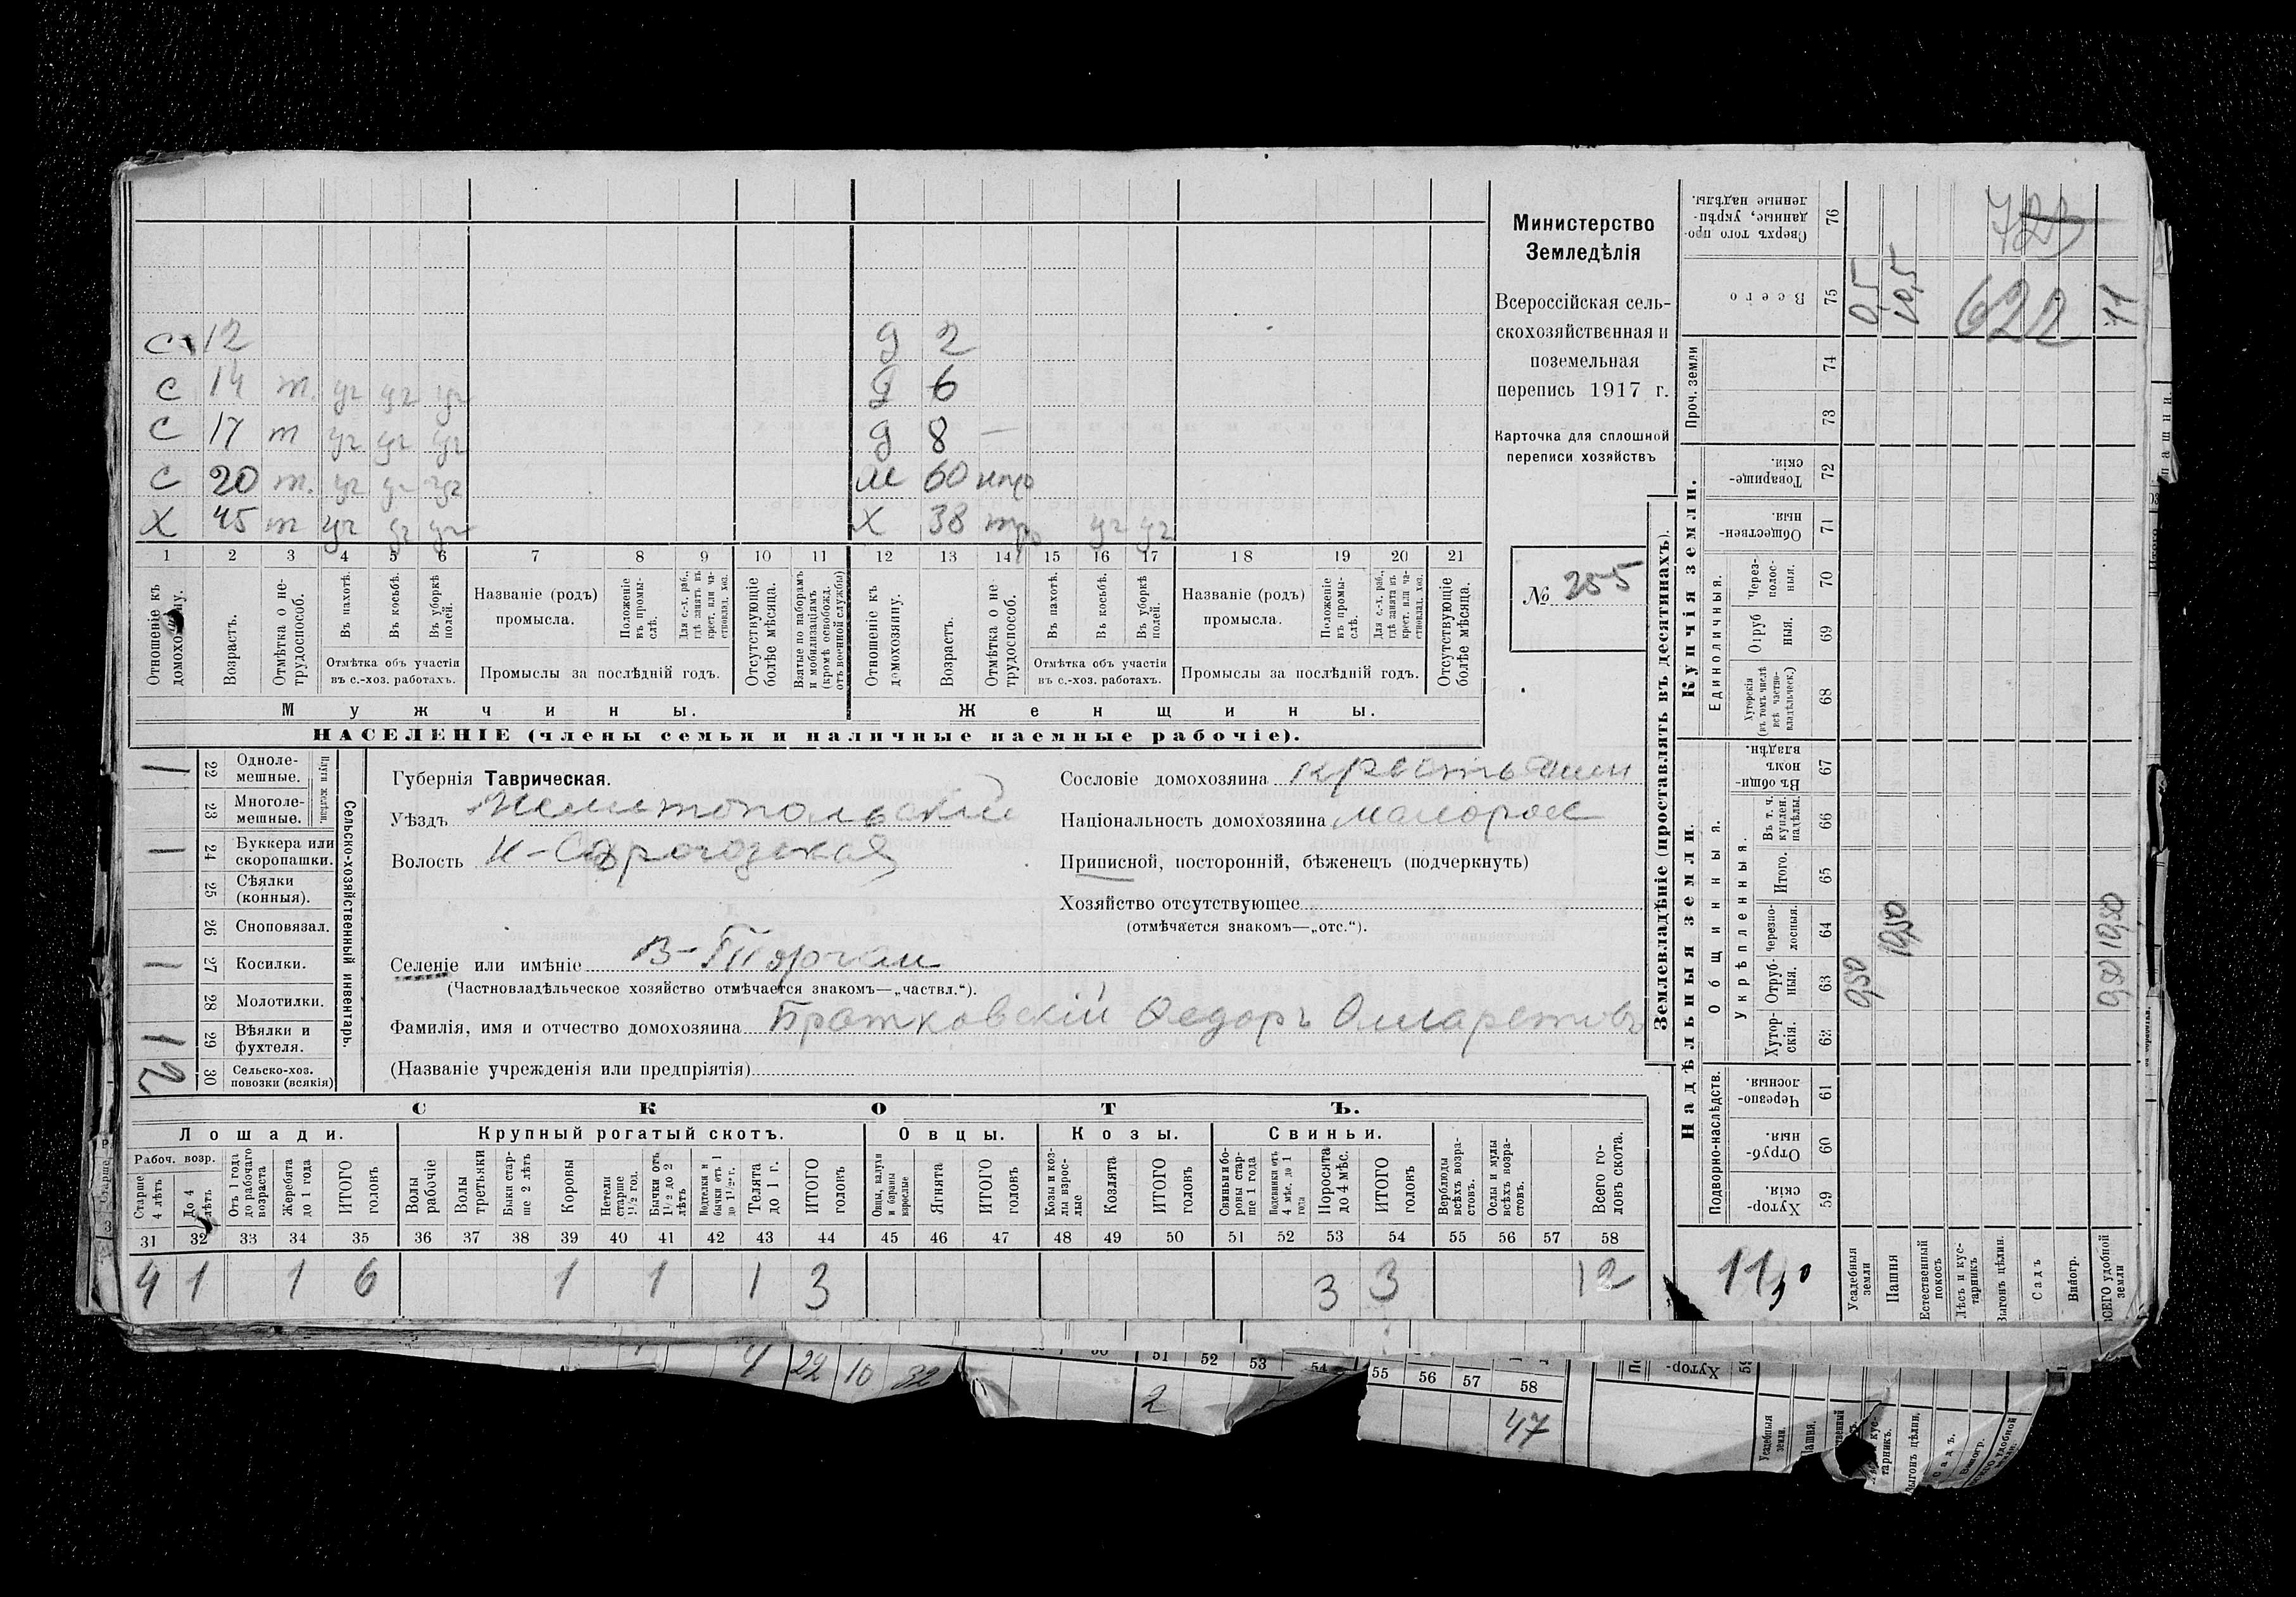 С 12 д 2
С 14 т. уч уч уч д 6
С 17 т уч уч уч д 8 —
С 20 т. уч уч уч м 60 нтр
Х 45 т уч уч уч Х 38 тр уч уч
1 2 3 4 5 6 7 8 9 10 11 12 13 14 15 16 17 18 19 20 21
Отношеніе къ домохозяину.
Возрастъ.
Отмѣтка о нетрудоспособ.
Въ пахотѣ.
Въ косьбѣ.
Въ уборкѣ полей.
Отмѣтка объ участіи въ с.-хоз. работахъ.
Названіе (родъ) промысла.
Положеніе въ промыслѣ.
Для с.-х. раб., гдѣ занятъ въ крест. или частновлад. хоз.
Промыслы за послѣдній годъ.
Отсутствующіе болѣе мѣсяца.
Взятые по наборамъ и мобилизаціямъ (кромѣ освобожд. отъ военной службы)
Отношеніе къ домохозяину.
Возрастъ.
Отмѣтка о нетрудоспособ.
Въ пахотѣ.
Въ косьбѣ.
Въ уборкѣ полей.
Отмѣтка объ участіи въ с.-хоз. работахъ.
Названіе (родъ) промысла.
Положеніе въ промыслѣ.
Для с.-х. раб., гдѣ занята въ крест. или частновлад. хоз.
Промыслы за послѣдній годъ.
Отсутствующіе болѣе мѣсяца.
Мужчины. Женщины.
НАСЕЛЕНІЕ (члены семьи и наличные наемные рабочіе).
Министерство
Земледѣлія
Всероссійская сель-
скохозяйственная и
поземельная
перепись 1917 г.
Карточка для сплошной
переписи хозяйствъ
№ 255
1 22 Однолемешные.
23 Многолемешные.
Плуги желѣзн.
1 24 Буккера или скоропашки.
25 Сѣялки (конныя).
26 Сноповязал.
1 27 Косилки.
28 Молотилки.
1 29 Вѣялки и фухтеля.
2 30 Сельско-хоз. повозки (всякія)
Сельско-хозяйственный инвентарь.
Губернія Таврическая.
Уѣздъ Мелитопольскій
Волость Н-Сѣрогозская
Селеніе или имѣніе В-Торгаи
(Частновладѣльческое хозяйство отмѣчается знакомъ—„частвл.“).
Фамилія, имя и отчество домохозяина Братковскій Федоръ
(Названіе учрежденія или предпріятія)
Сословіе домохозяина крестьянин
Національность домохозяина малорос
Приписной, посторонній, бѣженецъ (подчеркнуть)
Хозяйство отсутствующее
(отмѣчается знакомъ—„отс.“).
СКОТЪ.
Лошади. Крупный рогатый скотъ. Овцы. Козы. Свиньи.
Рабоч. возр.
Старше 4 лѣтъ
До 4 лѣтъ
Отъ 1 года до рабочаго возраста
Жеребята до 1 года
ИТОГО головъ
Волы рабочіе
Волы третьяки
Быки старше 2 лѣтъ
Коровы
Нетели старше 1½ год.
Бычки отъ 1½ до 2 лѣтъ
Подтелки и бычки отъ 1 до 1½ г.
Телята до 1 г.
ИТОГО головъ
Овцы, валухи и бараны взрослые
Ягнята
ИТОГО головъ
Козы и козлы взрослые
Козлята
ИТОГО головъ
Свиньи и боровы старше 1 года
Подсвинки отъ 4 мѣс. до 1 года
Поросята до 4 мѣс.
ИТОГО головъ
Верблюды всѣхъ возрастовъ.
Ослы и мулы всѣхъ возрастовъ.
Всего головъ скота.
31 32 33 34 35 36 37 38 39 40 41 42 43 44 45 46 47 48 49 50 51 52 53 54 55 56 57 58
4 1 1 6 1 1 1 3 3 3 12
Землевладѣніе (проставлять въ десятинахъ).
Надѣльныя земли. Купчія земли. Проч. земли
Подворно-наслѣдств.
Общинныя.
Укрѣпленныя.
Единоличныя.
59 Хуторскія.
60 Отрубныя.
61 Черезполосныя.
62 Хуторскія.
63 Отрубныя.
64 Черезполосныя.
65 Итого.
66 Въ т. ч. куплен. надѣлы.
67 Въ общинномъ владѣн.
68 Хуторскія (въ томъ числѣ всѣ частновладѣльческ.)
69 Отрубныя.
70 Черезполосныя.
71 Общественныя.
72 Товарищескія.
73
74
75 Всего
76 Сверхъ того проданные, укрѣпленные надѣлы.
Усадебныя земли 0,50 0,5
Пашня 10,50 10,5
Естественный покосъ
Лѣсъ и кустарникъ
Выгонъ цѣлин.
Садъ
Виногр.
ВСЕГО удобной земли 0,50 10,50 11
622
11,0
4 22 10 32
51 52 53 54 55 56 57 58
2
47
Хутор-
Усадебныя земли.
Пашня.
кустарникъ.
Выгонъ цѣлин.
Садъ.
Виногр.
удобной